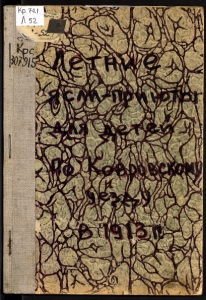 Кр 741
Л 52
Крс
307915
Летние
ясли-приюты
для детей
по Ковровскому
уезду
в 1913 г.